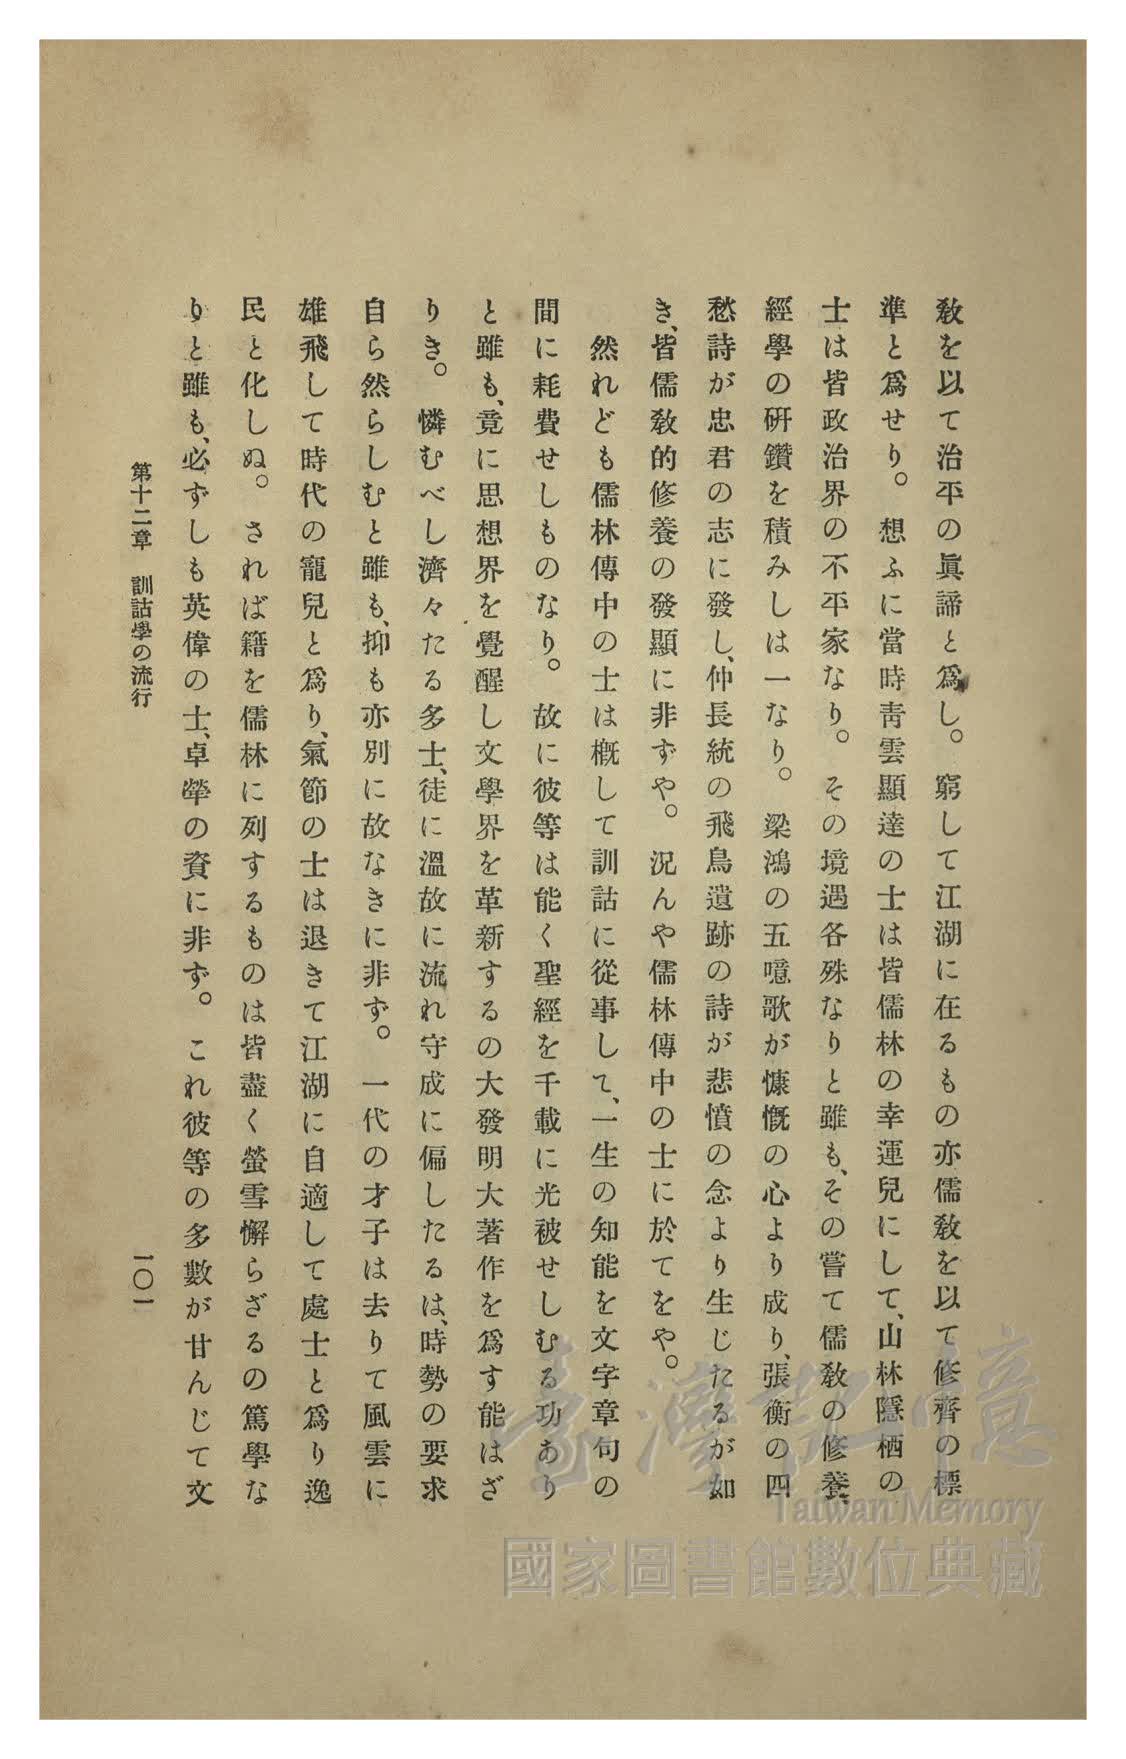 敎を以て治平の眞諦と爲し。窮して江湖に在るもの亦儒敎を以て修齊の標
準と爲せり。想ふに當時靑雲顯達の士は皆儒林の幸運兒にして、山林隱栖の
士は皆政治界の不平家なり。その境遇各殊なりと雖も、その嘗て儒敎の修養、
經學の硏鑽を積みしは一なり。梁鴻の五噫歌が慷慨の心より成り、張衡の四
愁詩が忠君の志に發し、仲長統の飛鳥遺跡の詩が悲憤の念より生じたるが如
き、皆儒敎的修養の發顯に非ずや。況んや儒林傳中の士に於てをや。
然れども儒林傳中の士は槪して訓詁に從事して、一生の知能を文字章句の
間に耗費せしものなり。故に彼等は能く聖經を千載に光被せしむる功あり
と雖も、竟に思想界を覺醒し文學界を革新するの大發明大著作を爲す能はざ
りき。憐むべし濟々たる多士、徒に溫故に流れ守成に偏したるは、時勢の要求
自ら然らしむと雖も、抑も亦別に故なきに非ず。一代の才子は去りて風雲に
雄飛して時代の寵兒と爲り、氣節の士は退きて江湖に自適して處士と爲り逸
民と化しぬ。されば籍を儒林に列するものは皆盡く螢雪懈らざるの篤學な
りと雖も、必ずしも英偉の士、卓犖の資に非ず。これ彼等の多數が甘んじて文
第十二章　訓詁學の流行
一〇一
臺灣記憶
Taiwan Memory
國家圖書館數位典藏